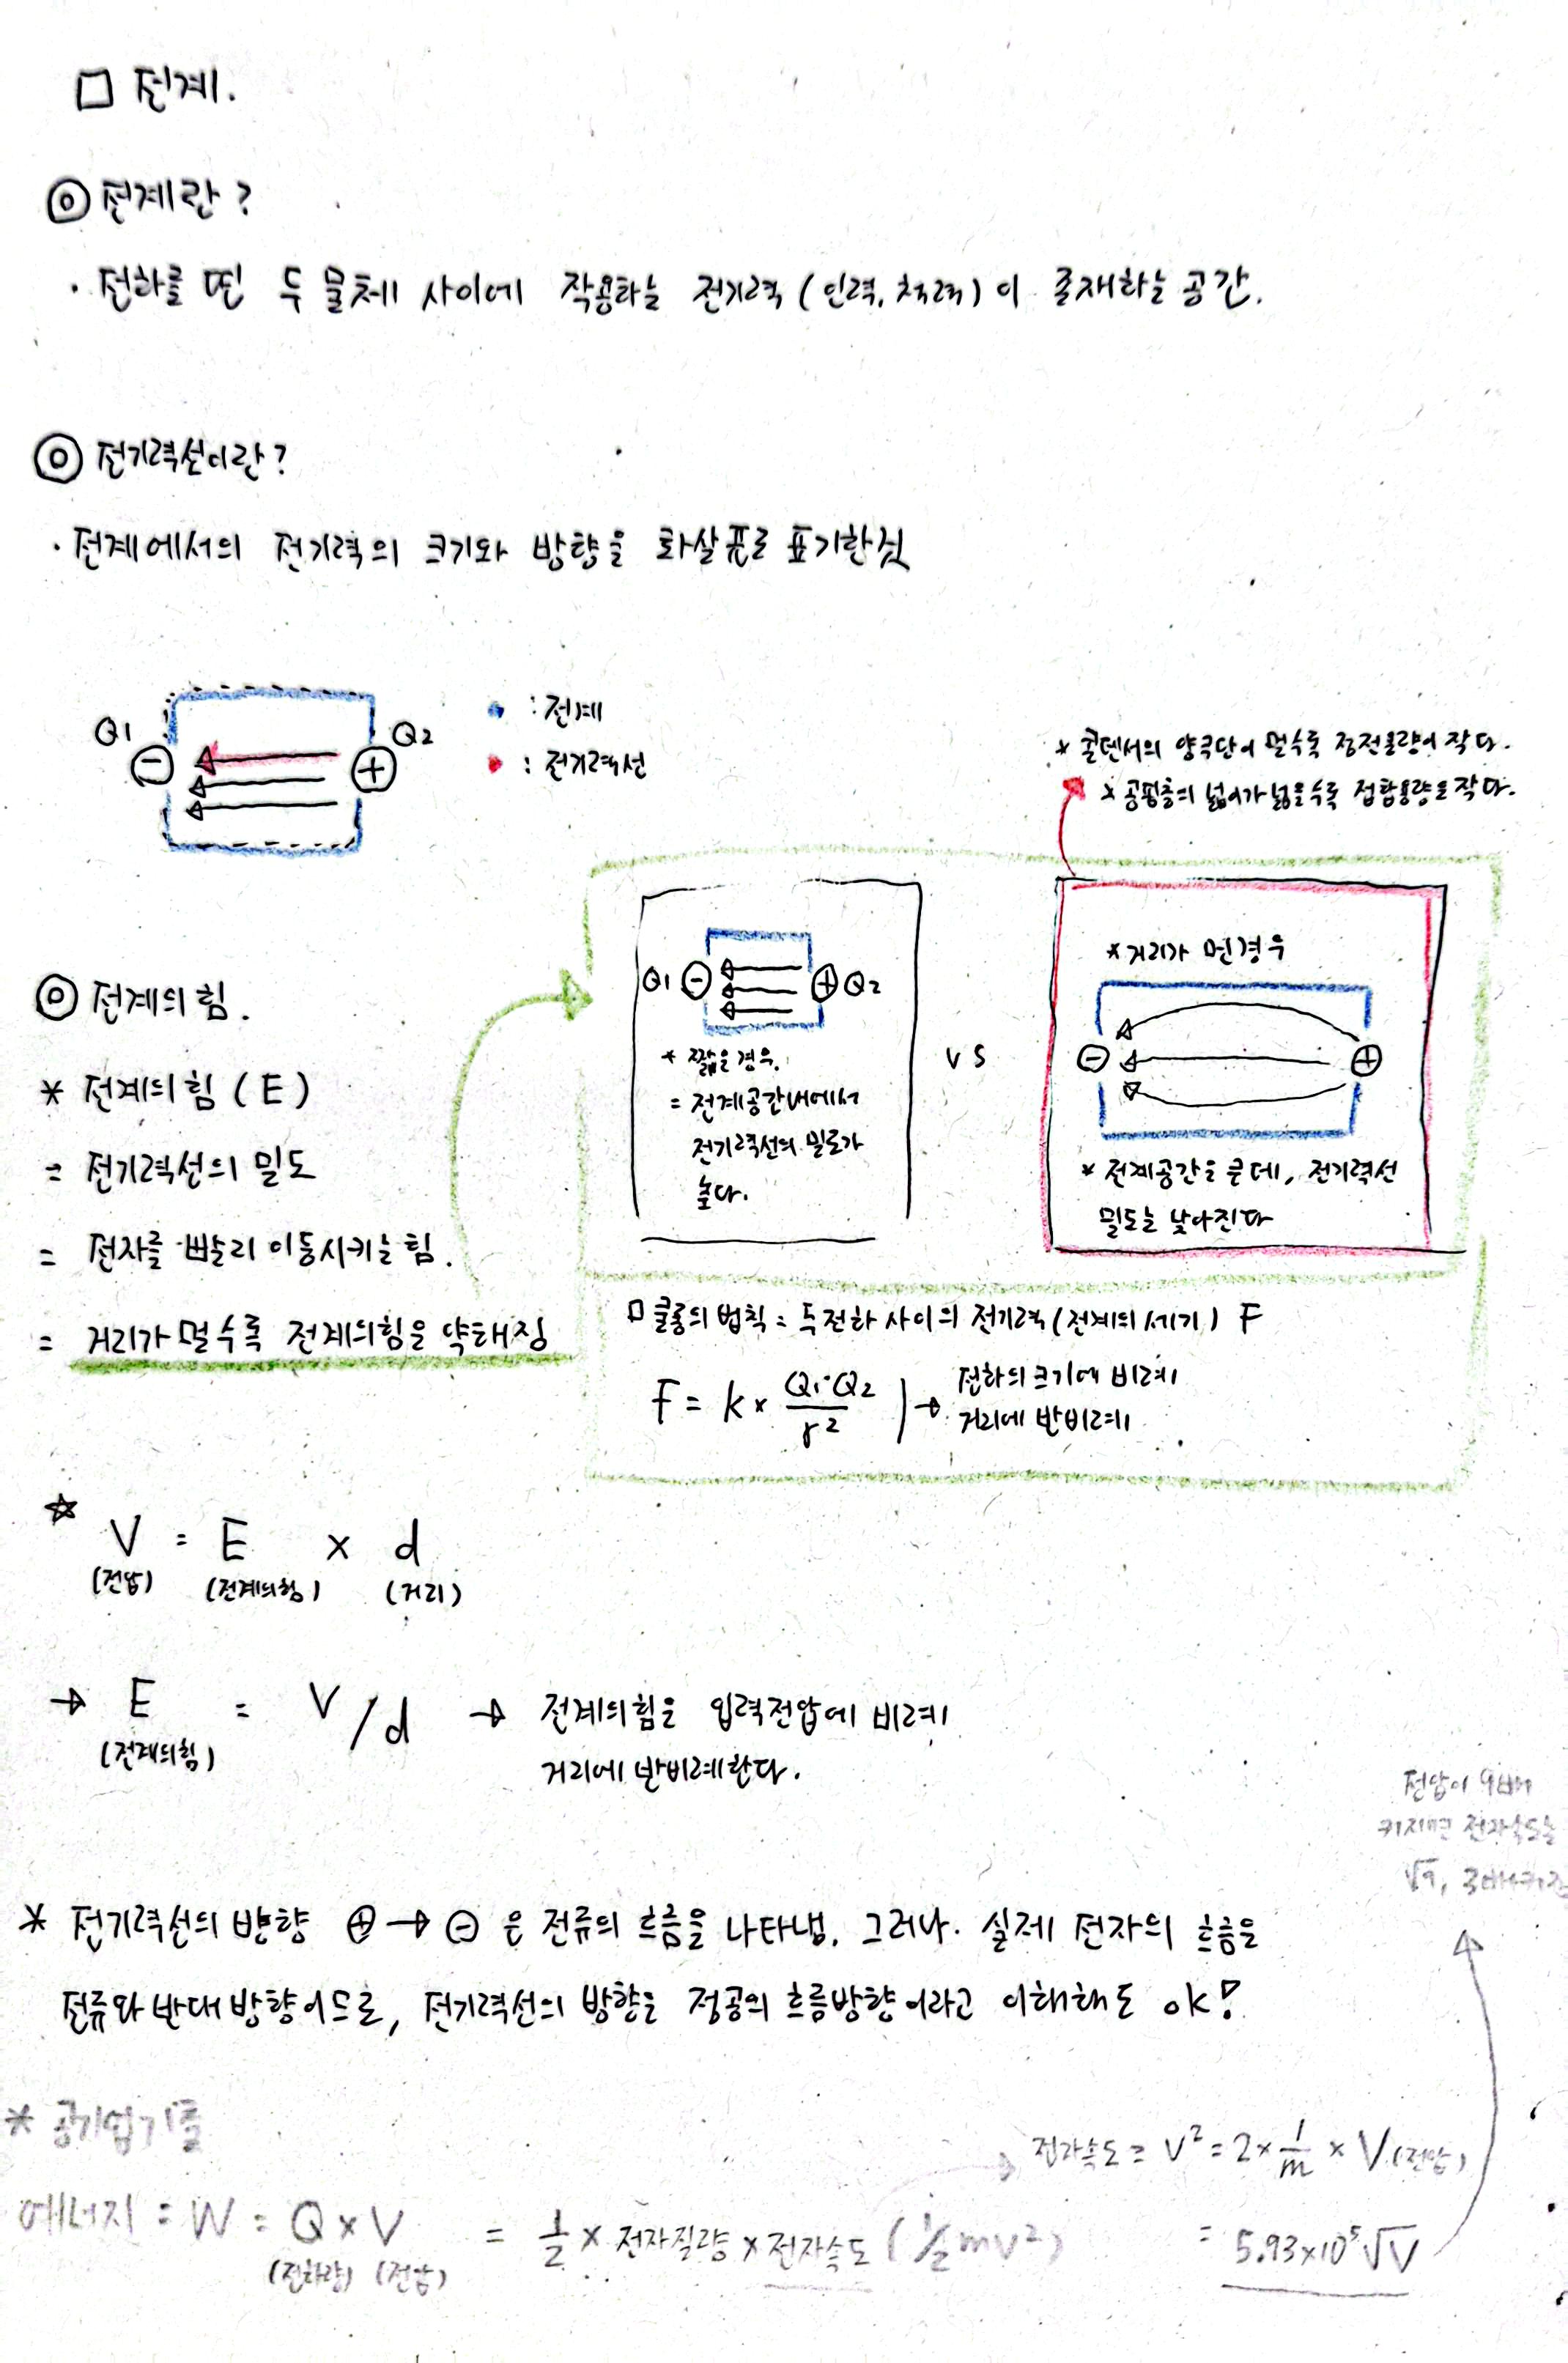 □ 전계.
◎ 전계란?
· 전하를 띤 두 물체 사이에 작용하는 전기력 (인력, 척력) 이 존재하는 공간.
◎ 전기력선이란?
· 전계에서의 전기력의 크기와 방향을 화살표로 표기한것
Q1 Q2
− +
: 전계
: 전기력선
* 콘덴서의 양극단이 멀수록 정전용량이 작다.
* 공핍층의 넓이가 넓을수록 접합용량은 작다.
◎ 전계의 힘.
* 전계의 힘 (E)
= 전기력선의 밀도
= 전자를 빨리 이동시키는 힘.
= 거리가 멀수록 전계의힘은 약해짐
Q1 − + Q2
* 짧은 경우.
= 전계공간내에서
전기력선의 밀도가
높다.
VS
* 거리가 먼경우
− +
* 전계공간은 큰데, 전기력선
밀도는 낮아진다
□ 쿨롱의 법칙 = 두전하 사이의 전기력 (전계의 세기) F
F = k × Q1·Q2 / r² → 전하의 크기에 비례
거리에 반비례
☆ V = E × d
(전압) (전계의힘) (거리)
→ E = V/d → 전계의힘은 입력전압에 비례
(전계의힘) 거리에 반비례한다.
전압이 9배
커지면 전자속도는
√9, 3배커짐
* 전기력선의 방향 ⊕ → ⊖ 은 전류의 흐름을 나타냄. 그러나. 실제 전자의 흐름은
전류와 반대 방향이므로, 전기력선의 방향은 정공의 흐름방향이라고 이해해도 ok!
* 공기업기출
전자속도 = V² = 2 × 1/m × V (전압)
에너지 = W = Q × V = 1/2 × 전자질량 × 전자속도 (1/2 mv²) = 5.93×10⁵√V
(전하량) (전압)